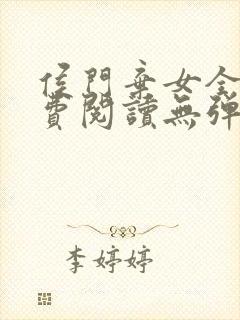 侯門棄女全
費閱讀無彈
李婷婷